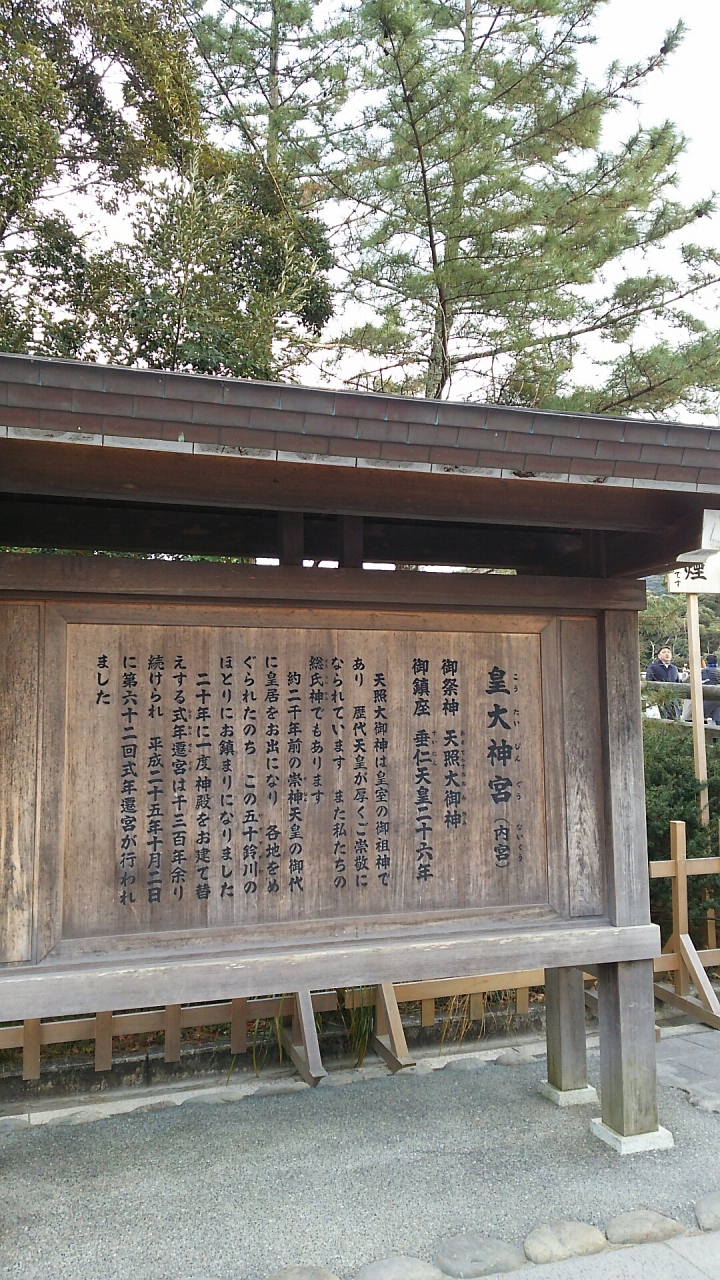 皇大神宮（内宮）
こうたいじんぐう ないくう
御祭神　天照大御神
あまてらすおおみかみ
御鎮座　垂仁天皇二十六年
すいにん
天照大御神は皇室の御祖神で
あり　歴代天皇が厚くご崇敬に
なられています　また私たちの
総氏神でもあります
約二千年前の崇神天皇の御代
に皇居をお出になり　各地をめ
ぐられたのち　この五十鈴川の
ほとりにお鎮まりになりました
二十年に一度神殿をお建て替
えする式年遷宮は千三百年余り
続けられ　平成二十五年十月二日
に第六十二回式年遷宮が行われ
ました
煙
です